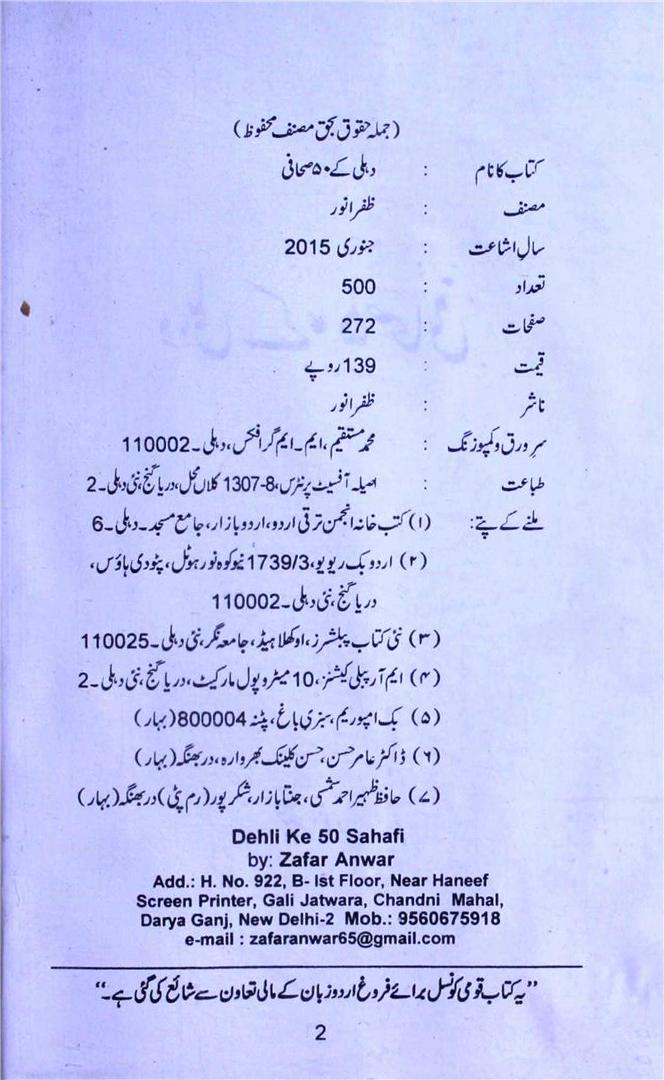 (جملہ حقوق بحق مصنف محفوظ)
کتاب کا نام : دہلی کے ۵۰ صحافی
مصنف : ظفر انور
سالِ اشاعت : جنوری 2015
تعداد : 500
صفحات : 272
قیمت : 139 روپے
ناشر : ظفر انور
سرورق و کمپوزنگ : محمد مستقیم، ایم۔ایم گرافکس، دہلی۔110002
طباعت : اصیلہ آفسیٹ پرنٹرس، 1307-8 کلاں محل، دریا گنج، نئی دہلی۔2
ملنے کے پتے: (۱) کتب خانہ انجمن ترقی اردو، اردو بازار، جامع مسجد۔دہلی۔6
(۲) اردو بک ریویو، 1739/3 نیو کوہ نور ہوٹل، پٹودی ہاؤس،
دریا گنج، نئی دہلی۔110002
(۳) نئی کتاب پبلشرز، اوکھلا ہیڈ، جامعہ نگر، نئی دہلی۔110025
(۴) ایم آر پبلی کیشنز، 10 میٹروپول مارکیٹ، دریا گنج، نئی دہلی۔2
(۵) بک امپوریم، سبزی باغ، پٹنہ 800004 (بہار)
(۶) ڈاکٹر عامر حسن، حسن کلینک بھروارہ، دربھنگہ (بہار)
(۷) حافظ ظہیر احمد شمسی، جنتا بازار، شکر پور (رم پٹی) دربھنگہ (بہار)
Dehli Ke 50 Sahafi
by: Zafar Anwar
Add.: H. No. 922, B- Ist Floor, Near Haneef
Screen Printer, Gali Jatwara, Chandni Mahal,
Darya Ganj, New Delhi-2 Mob.: 9560675918
e-mail : zafaranwar65@gmail.com
”یہ کتاب قومی کونسل برائے فروغ اردو زبان کے مالی تعاون سے شائع کی گئی ہے۔“
2